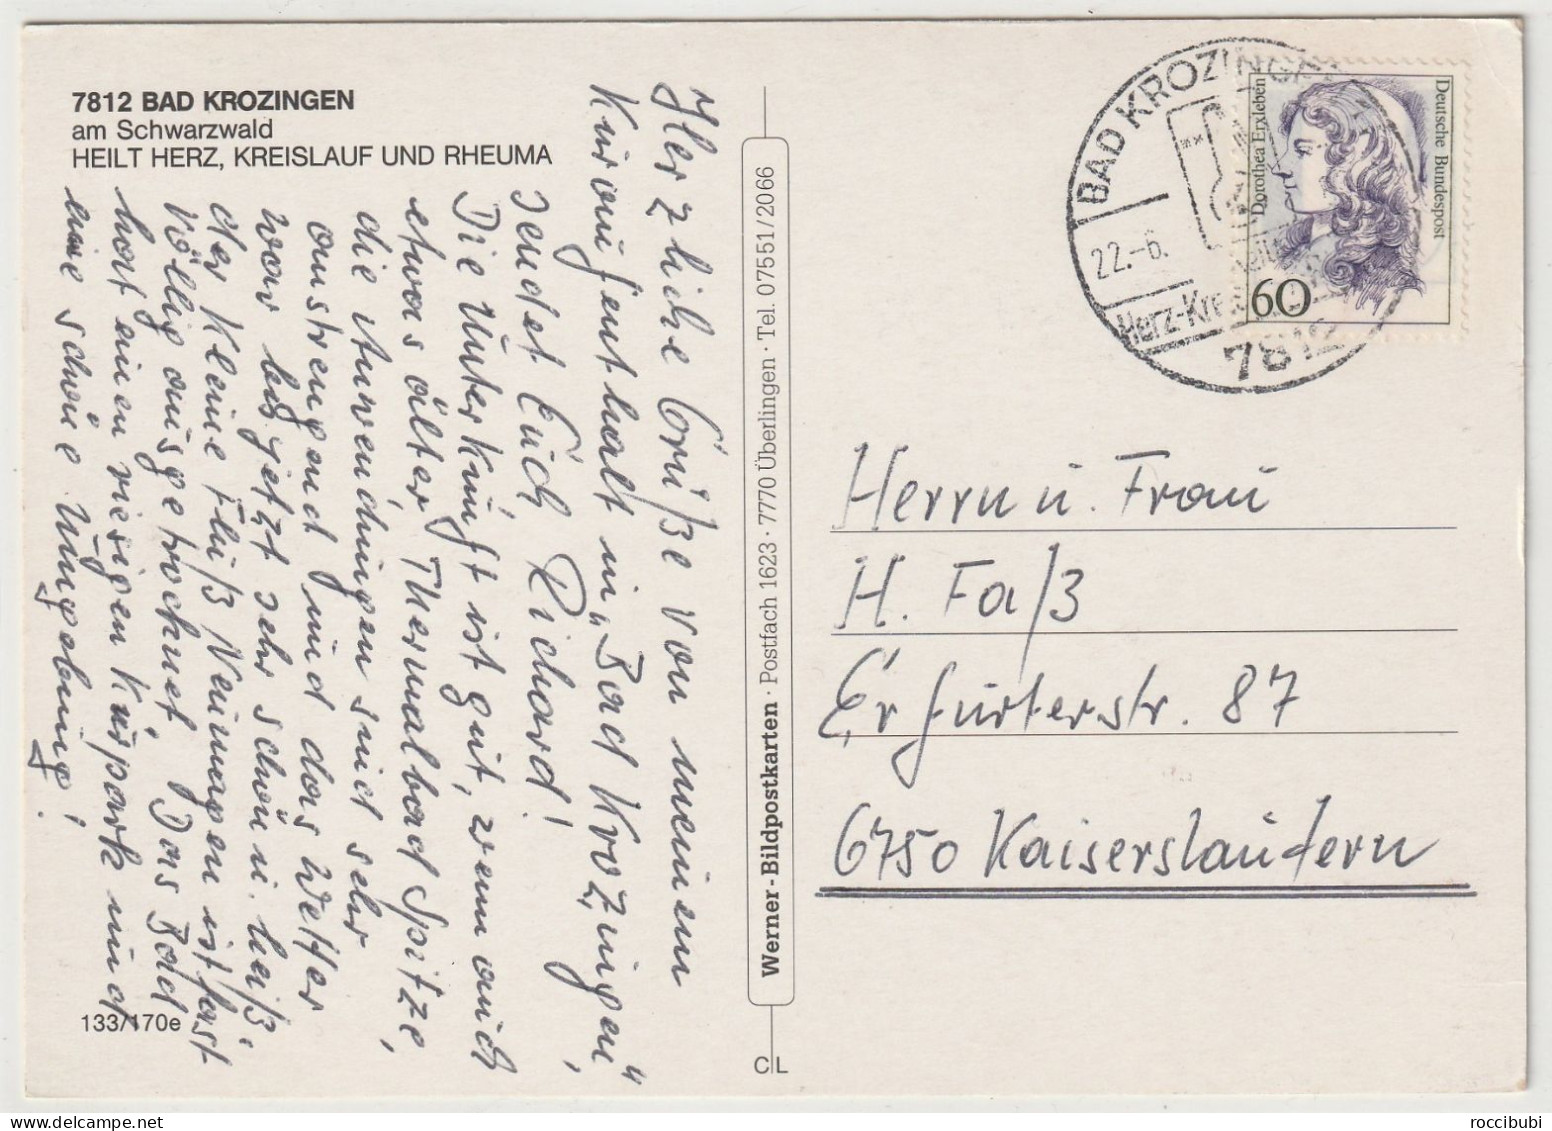 7812 BAD KROZINGEN
am Schwarzwald
HEILT HERZ, KREISLAUF UND RHEUMA
Herzliche Grüße von meinem
Kuraufenthalt in „Bad Krozingen"
sendet Euch Richard!
Die Unterkunft ist gut, wenn auch
etwas älter, Thermalbad Spitze,
die Anwendungen sind sehr
anstrengend und das Wetter
war bis jetzt sehr schön u. heiß.
der kleine Fluß Neumagen ist fast
völlig ausgetrocknet. Das Bad
hat einen riesigen Kurpark und
eine schöne Umgebung!
133/170e
Werner-Bildpostkarten · Postfach 1623 · 7770 Überlingen · Tel. 07551/2066
C L
BAD KROZINGEN
22.-6.
Herz-Kreis
7812
Deutsche Bundespost
Dorothea Erxleben
60
Herrn u. Frau
H. Faß
Erfurterstr. 87
6750 Kaiserslautern
roccibubi